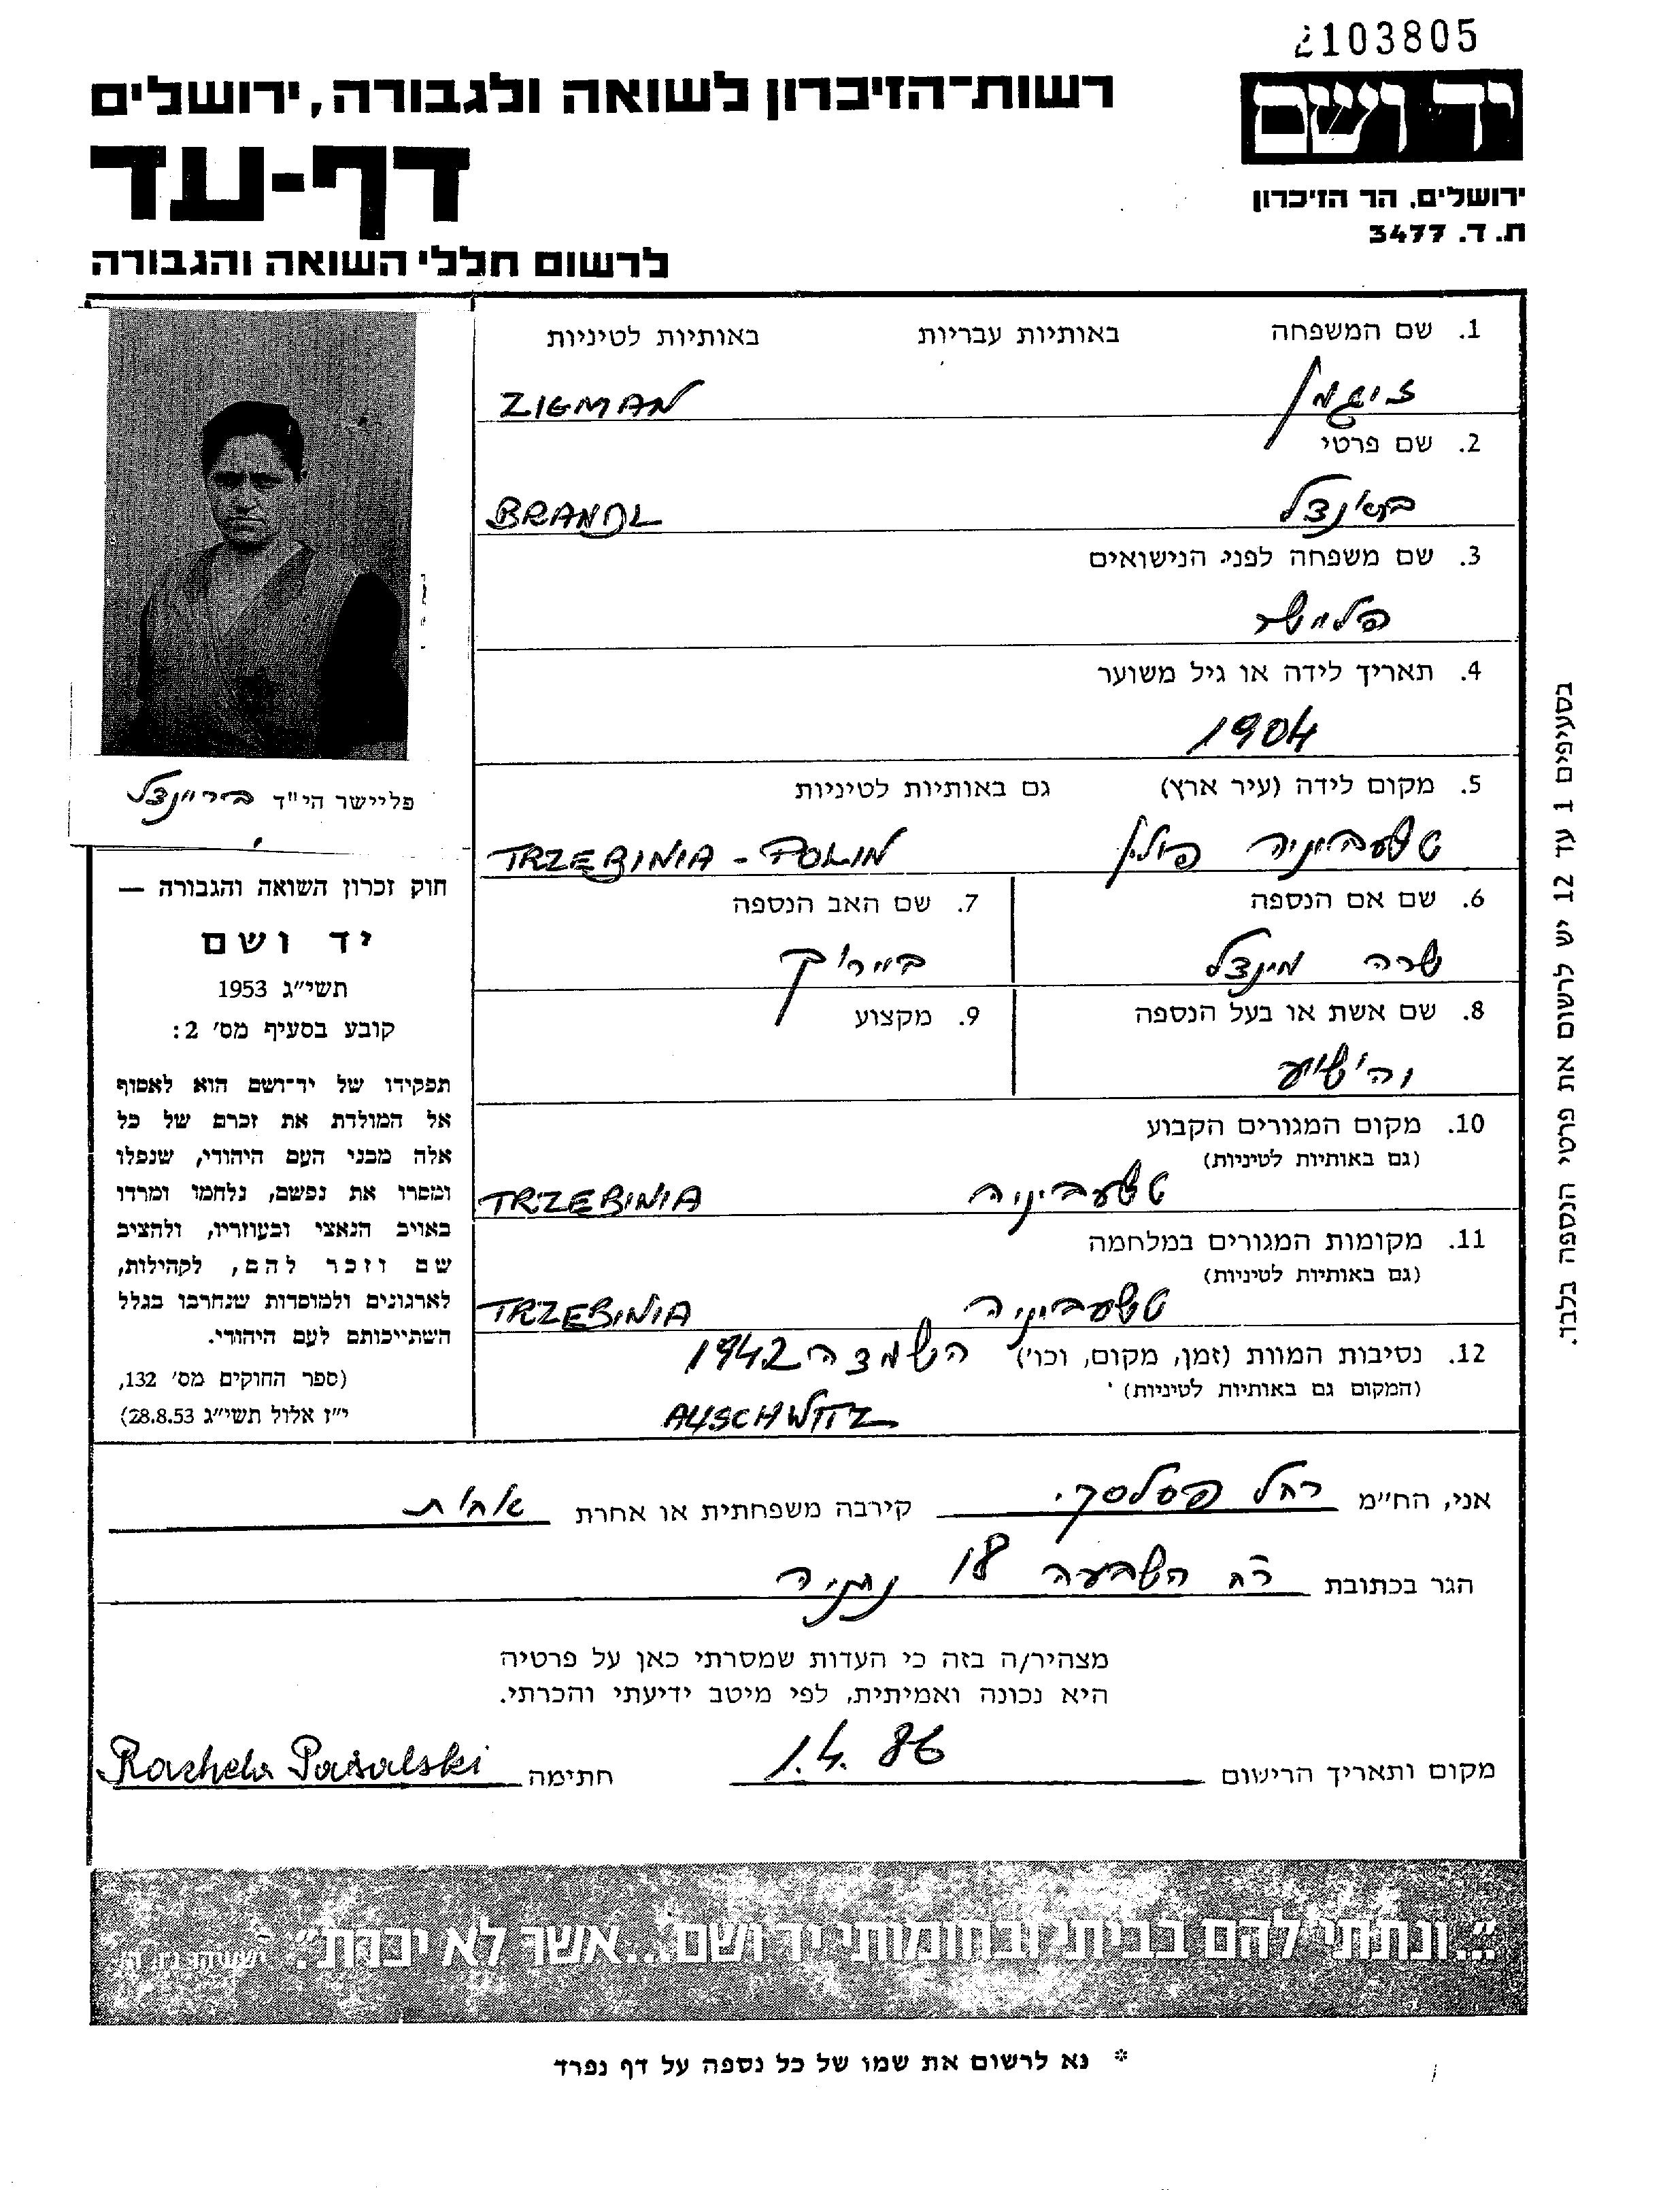 2103805
יד ושם
ירושלים, הר הזיכרון
ת. ד. 3477
רשות-הזיכרון לשואה ולגבורה, ירושלים
דף-עד
לרשום חללי השואה והגבורה
1. שם המשפחה באותיות עבריות באותיות לטיניות
זיגמן ZIGMAN
2. שם פרטי
בראנדל BRANDL
3. שם משפחה לפני הנישואים
פליישר
4. תאריך לידה או גיל משוער
1904
5. מקום לידה (עיר ארץ) גם באותיות לטיניות
טשעביניה פולין TRZEBINIA - POLIN
6. שם אם הנספה
שרה מינדל
7. שם האב הנספה
8. שם אשת או בעל הנספה
9. מקצוע
10. מקום המגורים הקבוע
(גם באותיות לטיניות)
טשעביניה TRZEBINIA
11. מקומות המגורים במלחמה
(גם באותיות לטיניות)
טשעביניה TRZEBINIA
12. נסיבות המוות (זמן, מקום, וכו') השמדה 1942
(המקום גם באותיות לטיניות)
AUSCHWITZ
פליישר הי"ד
חוק זכרון השואה והגבורה —
יד ושם
תשי"ג 1953
קובע בסעיף מס' 2:
תפקידו של יד-ושם הוא לאסוף
אל המולדת את זכרם של כל
אלה מבני העם היהודי, שנפלו
ומסרו את נפשם, נלחמו ומרדו
באויב הנאצי ובעוזריו, ולהציב
שם וזכר להם, לקהילות,
לארגונים ולמוסדות שנחרבו בגלל
השתייכותם לעם היהודי.
(ספר החוקים מס' 132,
י"ז אלול תשי"ג 28.8.53)
בסעיפים 1 עד 12 יש לרשום את פרטי הנספה בלבד.
אני, הח"מ רחל פסלסקי קירבה משפחתית או אחרת אחות
הגר בכתובת רח השבעה 18 נתניה
מצהיר/ה בזה כי העדות שמסרתי כאן על פרטיה
היא נכונה ואמיתית, לפי מיטב ידיעתי והכרתי.
מקום ותאריך הרישום 1.4.86 חתימה Rachela Pasalski
"...ונתתי להם בביתי ובחומותי יד ושם...אשר לא יכרת". ישעיהו נו, ה'
* נא לרשום את שמו של כל נספה על דף נפרד